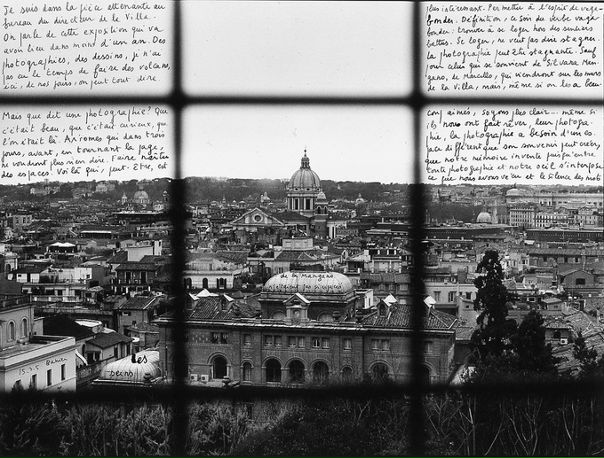 Je suis dans la pièce attenante au
bureau du directeur de la Villa.
On parle de cette exposition qui va
avoir lieu dans moins d'un an. Des
photographies, des dessins, je n'ai
pas eu le temps de faire des volumes,
ici, de nos jours on peut tout dire.
Mais que dit une photographie? Que
c'était beau, que c'était curieux, que
l'on était là. Arômes qui dans trois
jours, avant, en tournant la page,
ne voudront plus rien dire. Faire monter
des espaces. Voilà qui, peut-être, est
plus intéressant. Permettre à l'esprit de vaga-
bonder. Définition, ce soir du verbe vaga-
bonder: trouver à se loger hors des sentiers
battus. Se loger, ne veut pas dire stagner.
La photographie peut être stagnante. Sauf
pour celui qui se souvient de Silvana Man-
gano, de Marcello, qui viendront sur les murs
de la Villa, mais, même si on les a beau-
coup aimés, soyons plus clair... même si
ils nous ont fait rêver, leur photogra-
phie, la photographie a besoin d'un es-
pace différent que son souvenir peut créer,
que notre mémoire invente puisqu'entre
toute photographie et notre œil s'interpose
ce que nous avons vécu et le silence des mots
de la
Les